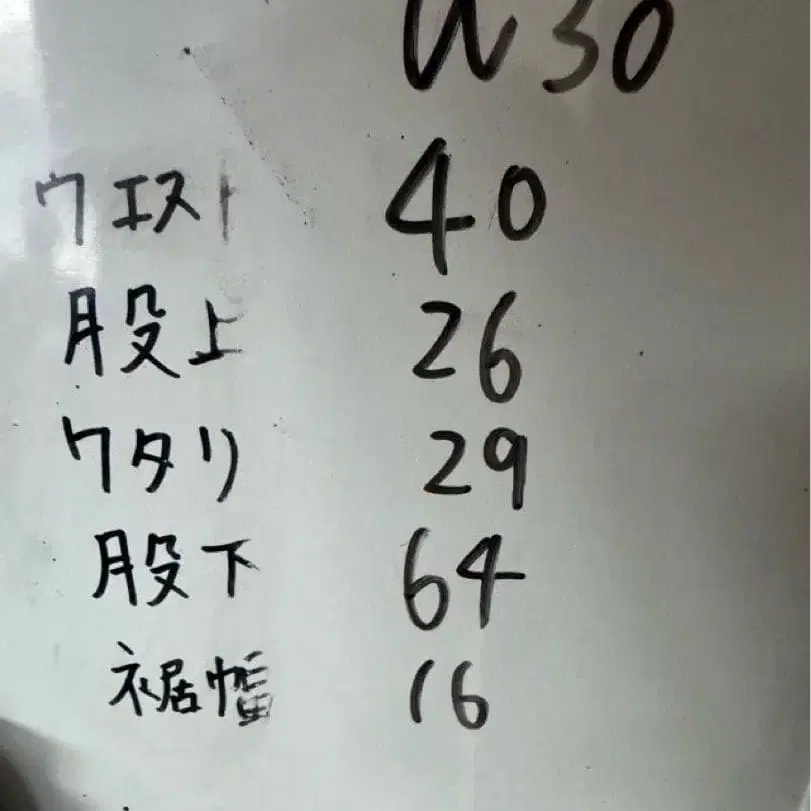 W30
ウエスト 40
股上 26
ワタリ 29
股下 64
裾幅 16